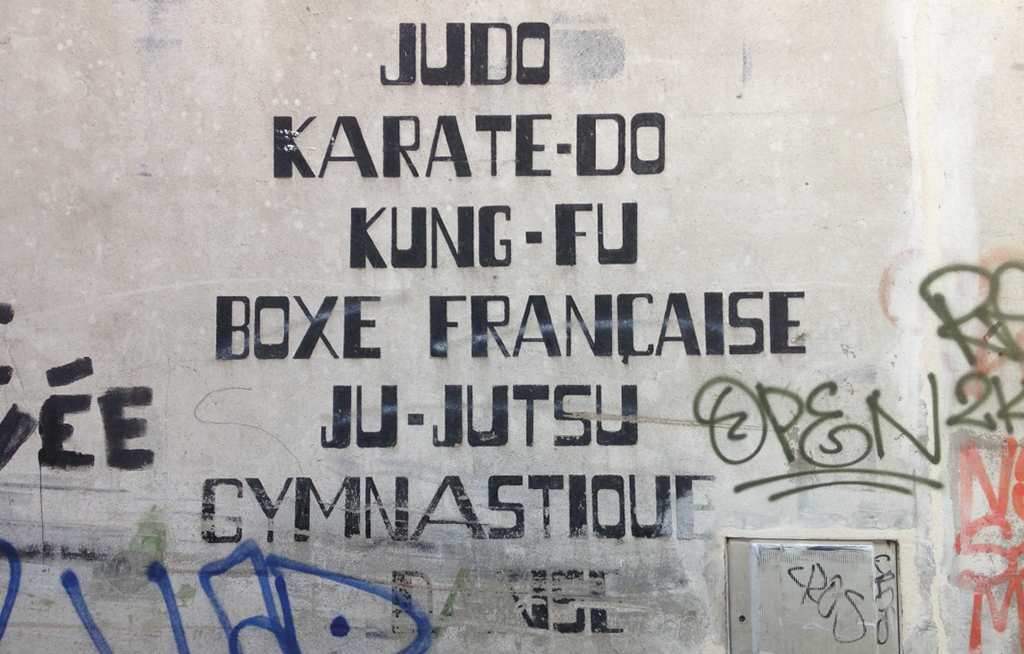 JUDO
KARATE-DO
KUNG-FU
BOXE FRANÇAISE
JU-JUTSU
GYMNASTIQUE
DANSE
OPEN
2K